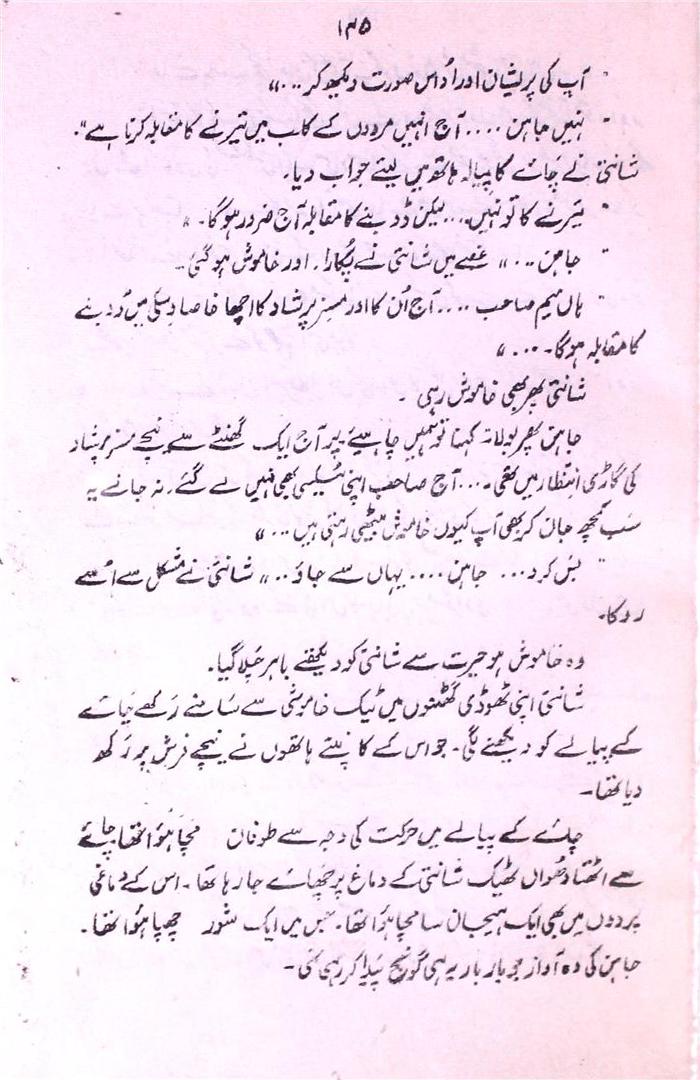 ۱۳۵
" آپ کی پریشان اور اُداس صورت دیکھ کر ..."
" نہیں جاہن .... آج انہیں مردوں کے کلب میں تیرنے کا مقابلہ کرنا ہے".
شانتی نے چائے کا پیالہ ہاتھ میں لیتے جواب دیا۔
" تیرنے کا تو نہیں... لیکن ڈوبنے کا مقابلہ آج ضرور ہوگا۔"
" جاہن ..." غصے میں شانتی نے پکارا۔ اور خاموش ہو گئی۔
" ہاں میم صاحب .... آج اُن کا اور مسز پرشاد کا اچھا خاصا وسکی میں ڈوبنے
کا مقابلہ ہوگا۔..."
شانتی پھر بھی خاموش رہی۔
جاہن پھر بولا نہ کہنا تو نہیں چاہیئے پر آج ایک گھنٹے سے نیچے مسز پرشاد
کی گاڑی انتظار میں تھی۔... آج صاحب اپنی ٹیکسی بھی نہیں لے گئے۔ نہ جانے یہ
سب کچھ جان کر بھی آپ کیوں خاموش بیٹھی رہتی ہیں ..."
" بس کرو ... جاہن .... یہاں سے جاؤ .." شانتی نے مشکل سے اُسے
روکا۔
وہ خاموش ہو حیرت سے شانتی کو دیکھتے باہر چلا گیا۔
شانتی اپنی ٹھوڈی گھٹنوں میں ٹیک خاموشی سے سامنے رکھے چائے
کے پیالے کو دیکھنے لگی۔ جو اس کے کانپتے ہاتھوں نے نیچے فرش پر رکھ
دیا تھا۔
چائے کے پیالے میں حرکت کی وجہ سے طوفان مچا ہؤا تھا۔ چائے
سے اٹھتا دھواں ٹھیک شانتی کے دماغ پر چھائے جا رہا تھا۔ اس کے دماغی
پردوں میں بھی ایک ہیجان سا مچا ہؤا تھا۔ جس میں ایک شور چھپا ہؤا تھا۔
جاہن کی وہ آواز جو بار بار یہ ہی گونج پیدا کر رہی تھی۔